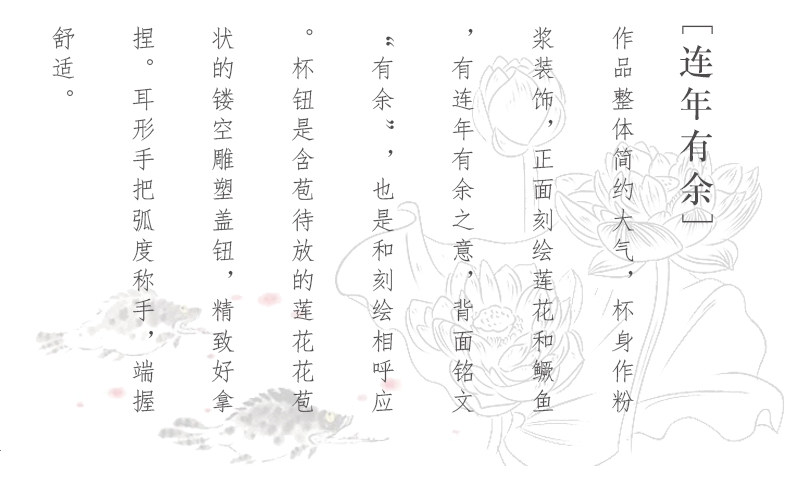 [连年有余]
作品整体简约大气，杯身作粉
浆装饰，正面刻绘莲花和鳜鱼
，有连年有余之意，背面铭文
“有余”，也是和刻绘相呼应
。杯钮是含苞待放的莲花花苞
状的镂空雕塑盖钮，精致好拿
捏。耳形手把弧度称手，端握
舒适。